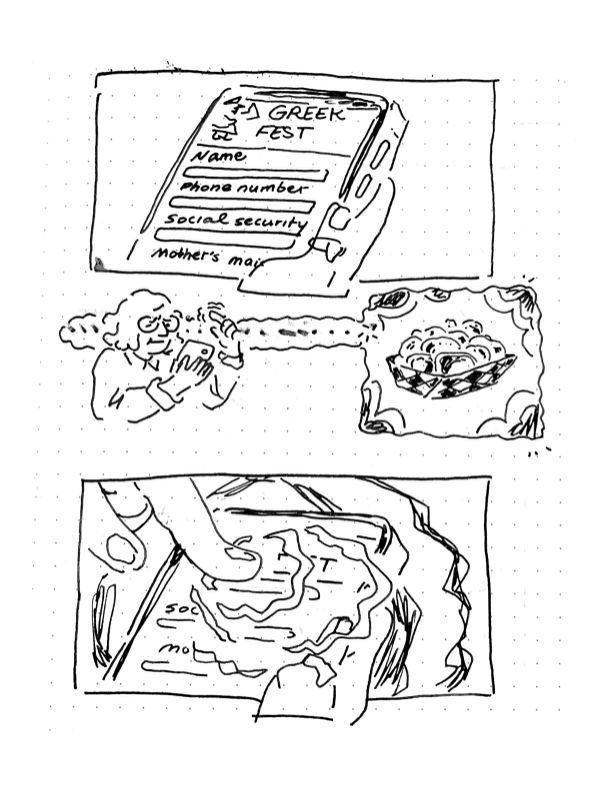 GREEK
FEST
Name
Phone number
Social security
Mother's mai
T
soc
mo